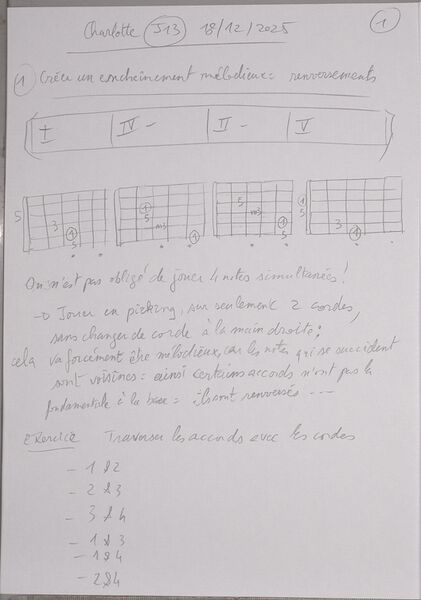 Charlotte J13 18/12/2025 1
1 Créer un enchaînement mélodieux = renversements
I IV - II - V
5 3 1 5
1 5 m3 1
5 m3 1 5
1 5 3 1
On n'est pas obligé de jouer 4 notes simultanées !
→ Jouer en picking, sur seulement 2 cordes,
sans changer de corde à la main droite ;
cela va forcément être mélodieux, car les notes qui se succèdent
sont voisines = ainsi certains accords n'ont pas la
fondamentale à la base = ils sont renversés ---
Exercice Traverser les accords avec les cordes
- 1 & 2
- 2 & 3
- 3 & 4
- 1 & 3
- 1 & 4
- 2 & 4